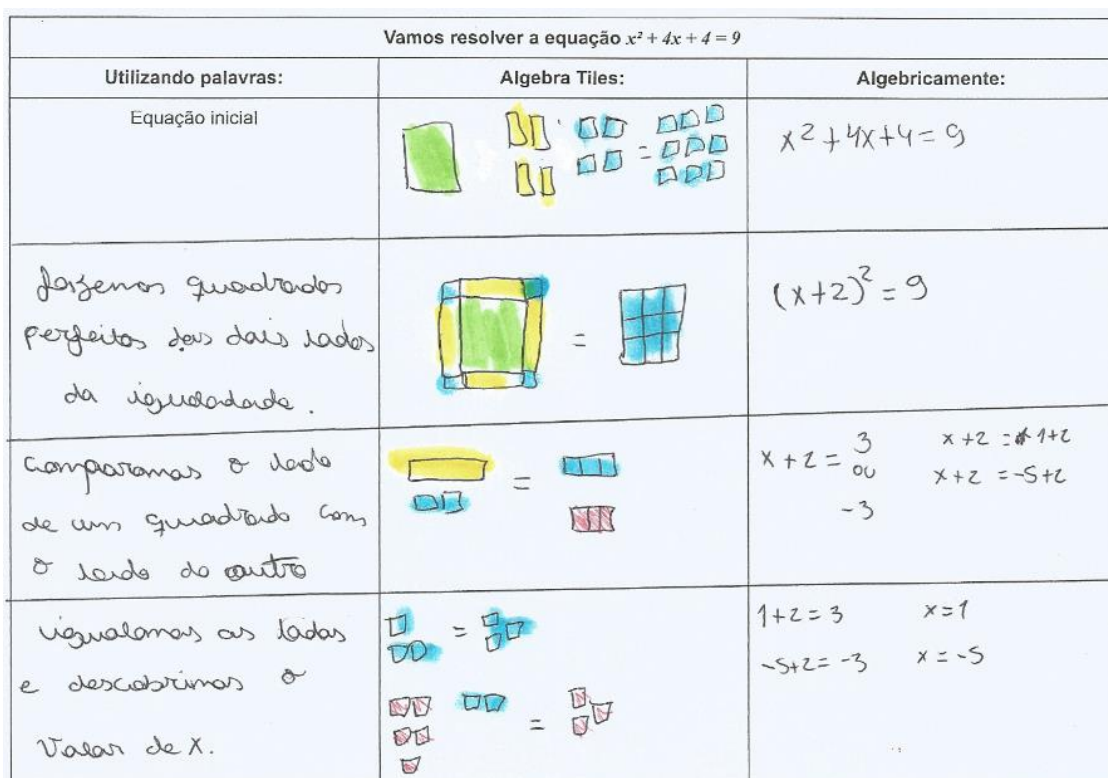 Vamos resolver a equação x² + 4x + 4 = 9
Utilizando palavras:
Algebra Tiles:
Algebricamente:
Equação inicial
=
x² + 4x + 4 = 9
fazemos quadrados
perfeitos dos dois lados
da igualdade.
=
(x+2)² = 9
comparamos o lado
de um quadrado com
o lado do outro
=
x + 2 = 3
ou
-3
x + 2 = 1+2
x+2 = -5+2
igualamos os lados
e descobrimos o
valor de x.
=
=
1+2 = 3
x = 1
-5+2 = -3
x = -5